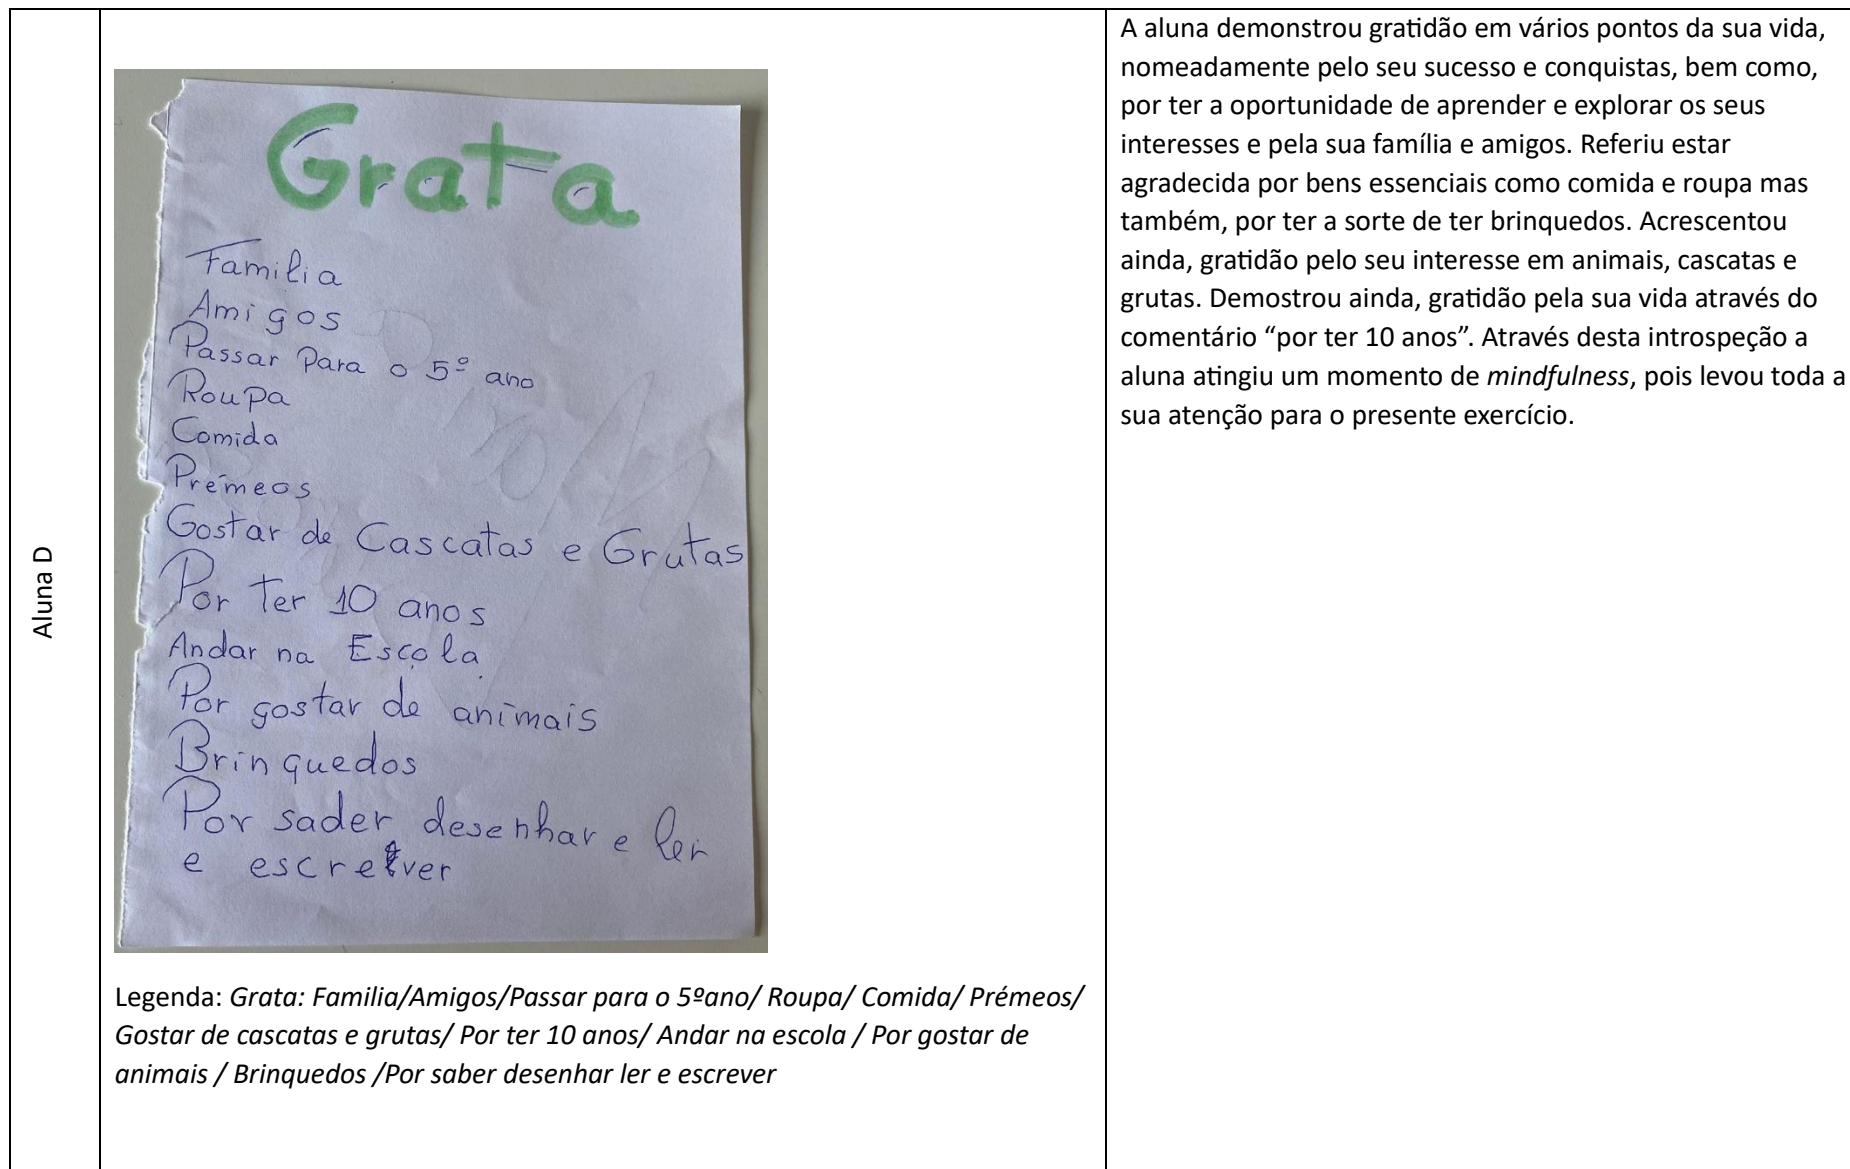 Aluna D
Grata
Familia
Amigos
Passar Para o 5º ano
Roupa
Comida
Prémeos
Gostar de Cascatas e Grutas
Por Ter 10 anos
Andar na Escola
Por gostar de animais
Brinquedos
Por sader desenhar e ler
e escrever
Legenda: Grata: Familia/Amigos/Passar para o 5ºano/ Roupa/ Comida/ Prémeos/
Gostar de cascatas e grutas/ Por ter 10 anos/ Andar na escola / Por gostar de
animais / Brinquedos /Por saber desenhar ler e escrever
A aluna demonstrou gratidão em vários pontos da sua vida,
nomeadamente pelo seu sucesso e conquistas, bem como,
por ter a oportunidade de aprender e explorar os seus
interesses e pela sua família e amigos. Referiu estar
agradecida por bens essenciais como comida e roupa mas
também, por ter a sorte de ter brinquedos. Acrescentou
ainda, gratidão pelo seu interesse em animais, cascatas e
grutas. Demostrou ainda, gratidão pela sua vida através do
comentário “por ter 10 anos”. Através desta introspeção a
aluna atingiu um momento de mindfulness, pois levou toda a
sua atenção para o presente exercício.